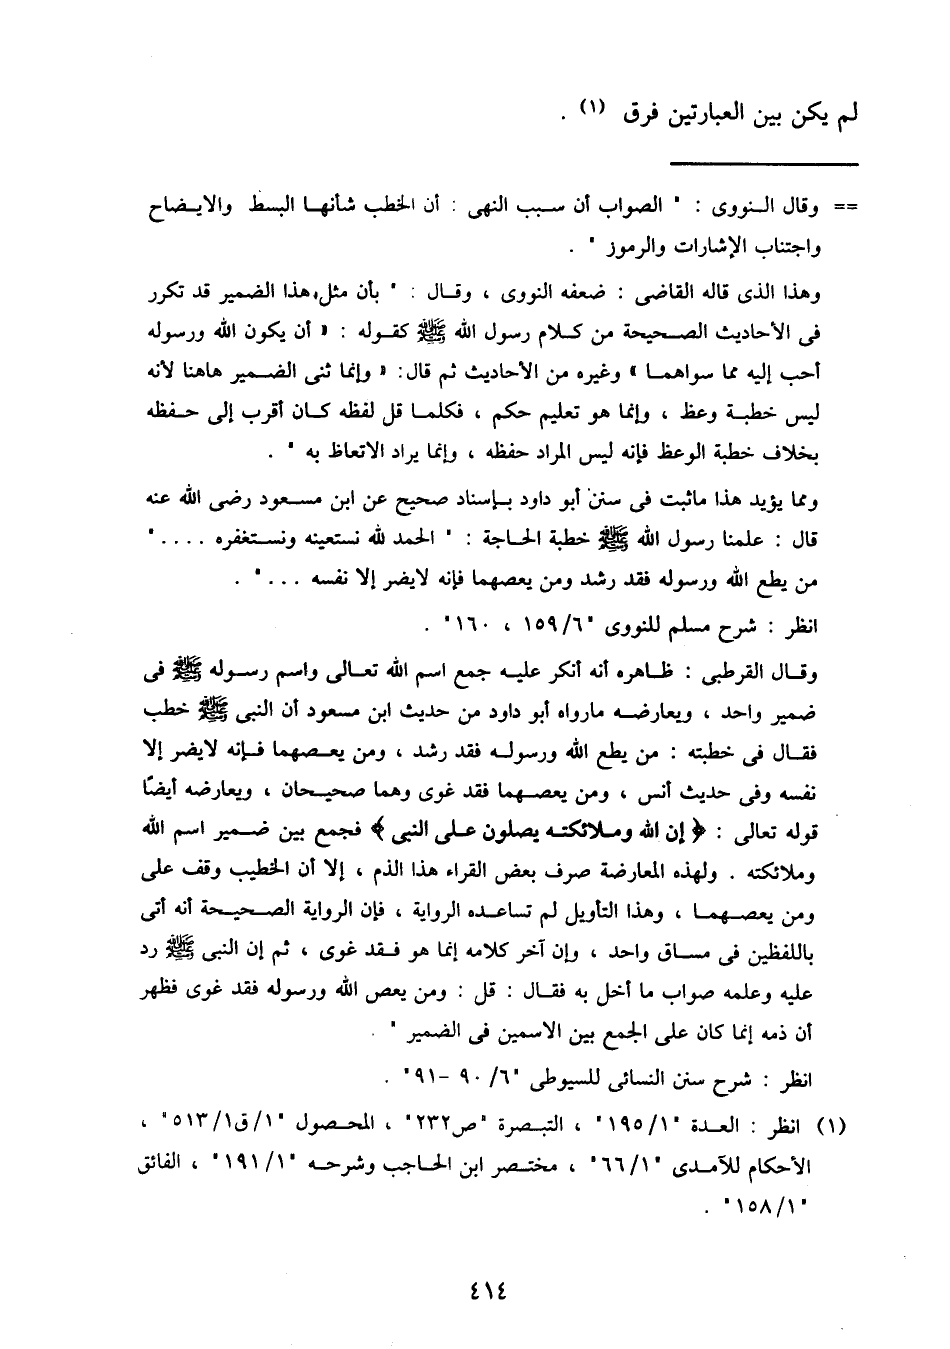 لم يكن بين العبارتين فرق (١) .
== وقال النووى : " الصواب أن سبب النهى : أن الخطب شأنها البسط والايضاح
واجتناب الإشارات والرموز " .
وهذا الذى قاله القاضى : ضعفه النووى ، وقال : " بأن مثل هذا الضمير قد تكرر
فى الأحاديث الصحيحة من كلام رسول الله ﷺ كقوله : « أن يكون الله ورسوله
أحب إليه مما سواهما » وغيره من الأحاديث ثم قال: « وإنما ثنى الضمير هاهنا لأنه
ليس خطبة وعظ ، وإنما هو تعليم حكم ، فكلما قل لفظه كان أقرب إلى حفظه
بخلاف خطبة الوعظ فإنه ليس المراد حفظه ، وإنما يراد الاتعاظ به " .
ومما يؤيد هذا ماثبت فى سنن أبو داود بإسناد صحيح عن ابن مسعود رضى الله عنه
قال : علمنا رسول الله ﷺ خطبة الحاجة : " الحمد لله نستعينه ونستغفره .... "
من يطع الله ورسوله فقد رشد ومن يعصهما فإنه لايضر إلا نفسه ... " .
انظر : شرح مسلم للنووى "٦/ ١٥٩ ، ١٦٠" .
وقال القرطبى : ظاهره أنه أنكر عليه جمع اسم الله تعالى واسم رسوله ﷺ فى
ضمير واحد ، ويعارضه مارواه أبو داود من حديث ابن مسعود أن النبى ﷺ خطب
فقال فى خطبته : من يطع الله ورسوله فقد رشد ، ومن يعصهما فإنه لايضر إلا
نفسه وفى حديث أنس ، ومن يعصهما فقد غوى وهما صحيحان ، ويعارضه أيضًا
قوله تعالى : ﴿ إن الله وملائكته يصلون على النبى ﴾ فجمع بين ضمير اسم الله
وملائكته . ولهذه المعارضة صرف بعض القراء هذا الذم ، إلا أن الخطيب وقف على
ومن يعصهما ، وهذا التأويل لم تساعده الرواية ، فإن الرواية الصحيحة أنه أتى
باللفظين فى مساق واحد ، وإن آخر كلامه إنما هو فقد غوى ، ثم إن النبى ﷺ رد
عليه وعلمه صواب ما أخل به فقال : قل : ومن يعص الله ورسوله فقد غوى فظهر
أن ذمه إنما كان على الجمع بين الاسمين فى الضمير " .
انظر : شرح سنن النسائى للسيوطى "٦/ ٩٠ -٩١" .
(١) انظر : العدة "١/ ١٩٥" ، التبصرة "ص٢٣٢" ، المحصول "١/ق١/ ٥١٣" ،
الأحكام للآمدى "١/ ٦٦" ، مختصر ابن الحاجب وشرحه "١/ ١٩١" ، الفائق
"١/ ١٥٨" .
٤١٤